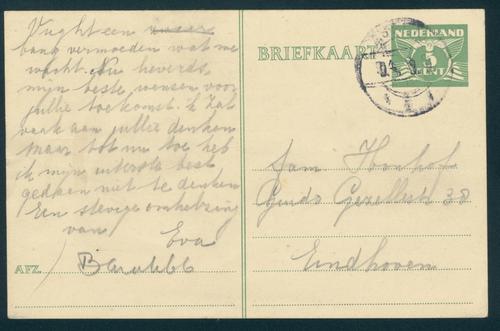 Vught een
bang vermoeden wat me
wacht. Nu lieverds,
mijn beste wensen voor
jullie toekomst. Ik zal
vaak aan jullie denken
maar tot nu toe heb
ik mijn uiterste best
gedaan niet te denken
Een stevige omhelzing
van
Eva
AFZ.
BRIEFKAART
NEDERLAND
5
CENT
Fam Honhof
Guido Gezellestr 38
Eindhoven